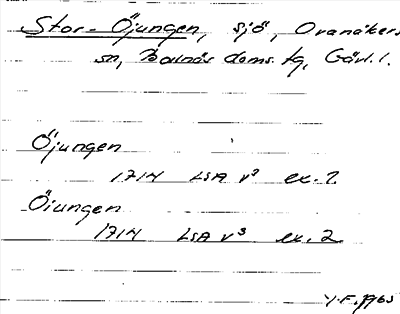 Stor-Öjungen, sjö, Ovanåkers
sn, Bollnäs doms. tg, Gävl. l.
Öjungen
1714 LSA v³ ex. 2
Öiungen
1714 LSA v³ ex. 2